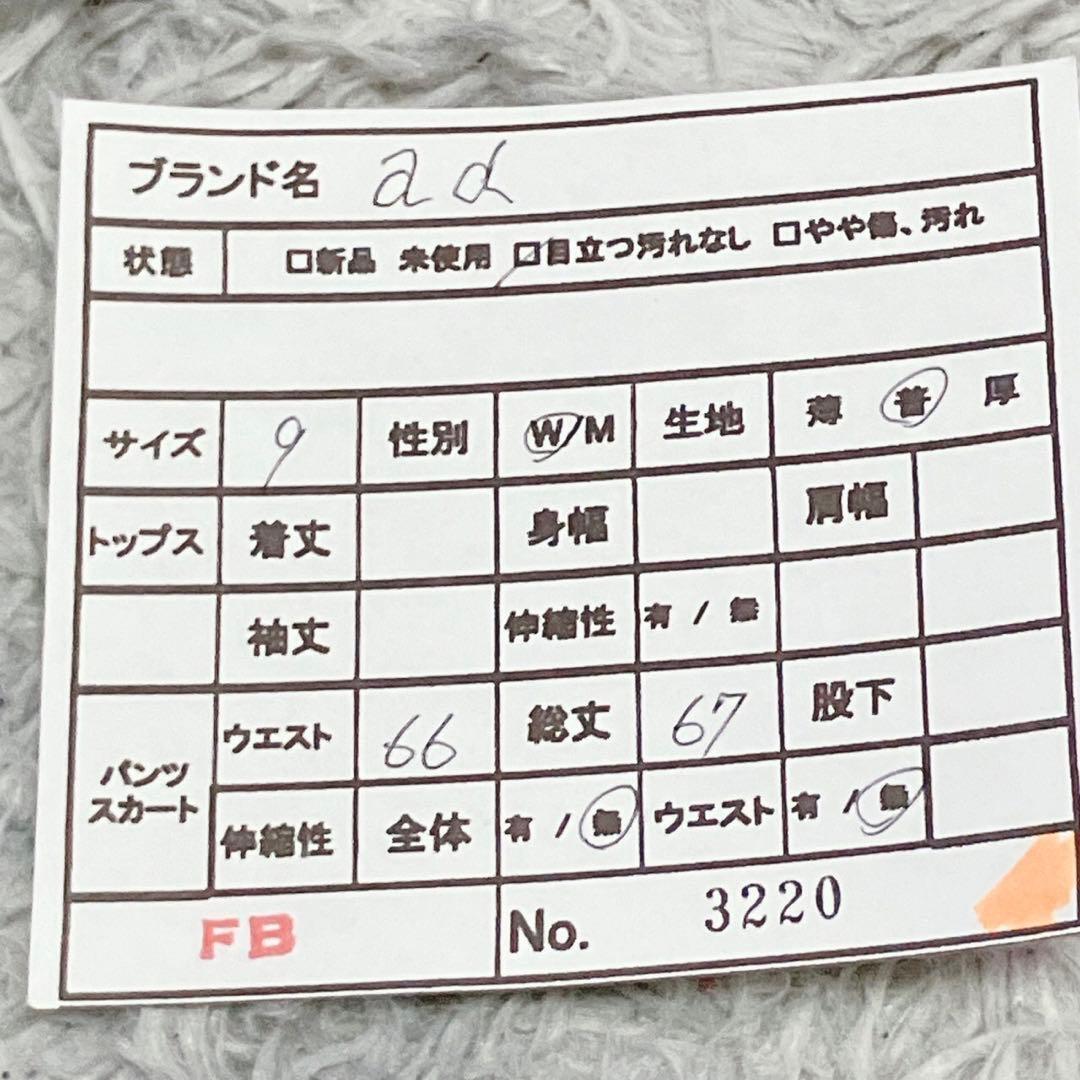 ブランド名 ad
状態 □新品 未使用 □目立つ汚れなし □やや傷、汚れ
サイズ 9 性別 W/M 生地 薄 普 厚
トップス 着丈 身幅 肩幅
袖丈 伸縮性 有 / 無
パンツ スカート ウエスト 66 総丈 67 股下
伸縮性 全体 有 / 無 ウエスト 有 / 無
FB No. 3220